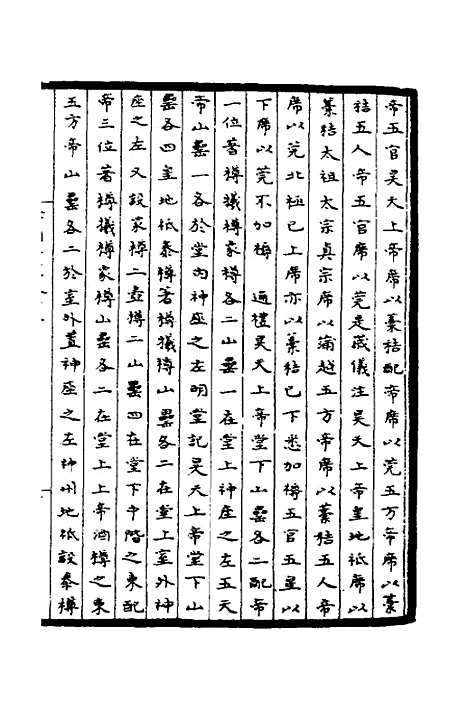 帝五官昊天上帝席以藁秸配帝席以莞五方帝席以藁
秸五人帝五官席以莞是歲儀注昊天上帝皇地祇席以
藁秸太祖太宗真宗席以蒲越五方帝席以藁秸五人帝
席以莞北極已上席亦以藁秸已下悉加褥五官五星以
下席以莞不加褥 通禮昊天上帝堂下山罍各二配帝
一位著罇犧罇象罇各二山罍一在堂上神座之左五天
帝山罍一各於堂內神座之左明堂記昊天上帝堂下山
罍各四皇地祇泰罇著罇犧罇山罍各二在堂上室外神
座之左又設象罇二壺罇二山罍四在堂下中階之東配
帝三位著罇犧罇象罇山罍各二在堂上上帝酒罇之東
五方帝山罍各二於室外置神座之左神州地祇設泰罇